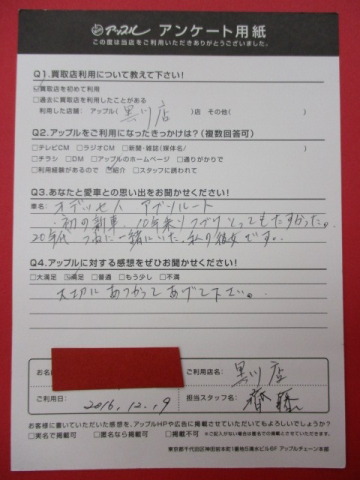 アップル アンケート用紙
この度は当店をご利用いただきありがとうございました。
Q1.買取店利用について教えて下さい!
☑買取店を初めて利用
□過去に買取店を利用したことがある
利用した店舗: アップル( 黒川店 )店 その他( )
Q2.アップルをご利用になったきっかけは?(複数回答可)
□テレビCM □ラジオCM □新聞・雑誌(媒体名/ )
□チラシ □DM □アップルのホームページ □通りがかりで
□利用経験があるので ☑紹介 □スタッフに誘われて
Q3.あなたと愛車との思い出をお聞かせください!
車名: オデッセイ アブソルート
初の新車、10年乗りつづけとってもたすかった。
20年代 つねに一緒にいた、私の彼女です。
Q4.アップルに対する感想をぜひお聞かせください!
□大満足 ☑満足 □普通 □もう少し □不満
大切にあつかってあげて下さい。
お名
ご利用店名: 黒川店
ご利用日: 2016.12.19
担当スタッフ名: 齋藤
お客様に書いていただいた感想を、アップルHPや広告に掲載させていただいてもよろしいでしょうか?
□実名で掲載可 □匿名なら掲載可 □掲載不可
東京都千代田区神田鍛冶町 アップルチェーン本部